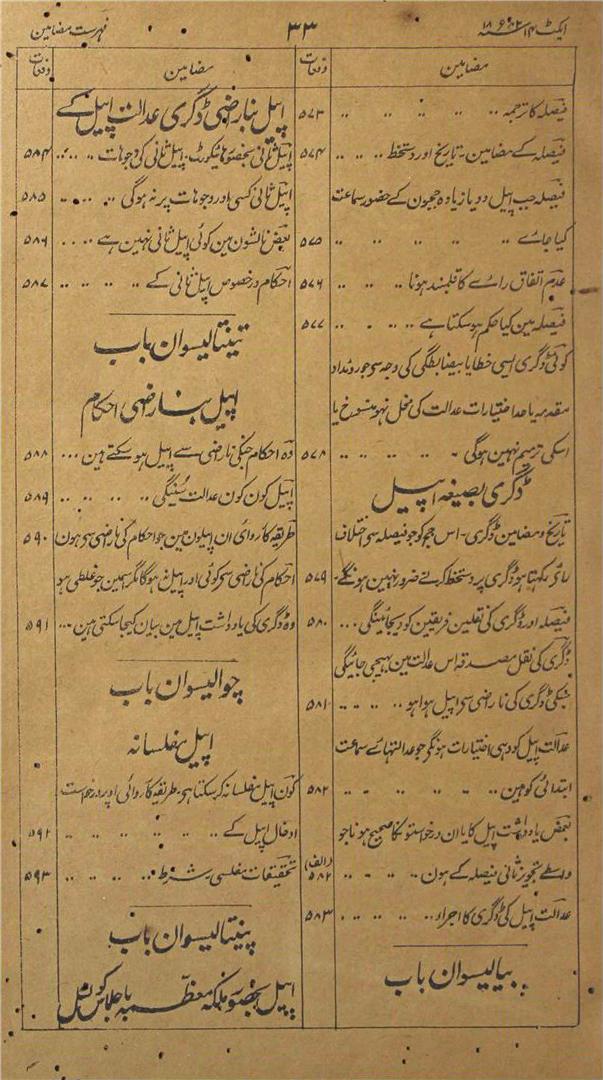 ایکٹ ۱۴ سنہ ۱۸۸۲ء
۳۳
فہرست مضامین
مضامین
دفعات
فیصلہ کا ترجمہ .. .. .. .. ..
۵۷۳
فیصلہ کے مضامین - تاریخ اور دستخط .. .. ..
۵۷۴
فیصلہ جب اپیل دو یا زیادہ ججون کے حضور سماعت
کیا جاۓ .. .. .. .. ..
۵۷۵
عدم اتفاق راۓ کا قلمبند ہونا .. .. ..
۵۷۶
فیصلہ مین کیا حکم ہو سکتا ہے .. .. ..
۵۷۷
کوئی ڈگری ایسی خطا یا بیضابطگی کی وجہ سے جو روئداد
مقدمہ یا حد اختیارات عدالت کی مخل نہو منسوخ یا
اسکی ترمیم نہین ہوگی - .. .. .. ..
۵۷۸
ڈگری بصیغہ اپیل
تاریخ و مضامین ڈگری - اس جج کو جو فیصلہ سے اختلاف
راۓ رکھتا ہو ڈگری پر دستخط کرنے ضرور نہین ہونگے -
۵۷۹
فیصلہ اور ڈگری کی نقلین فریقین کو دیجائینگی ...
۵۸۰
ڈگری کی نقل مصدقہ اس عدالت مین بھیجی جائیگی
جسکی ڈگری کی ناراضی سے اپیل ہوا ہو .. .. ..
۵۸۱
عدالت اپیل کو وہی اختیارات ہونگے جو عدالتہاۓ سماعت
ابتدائی کو ہین .. .. .. .. ..
۵۸۲
بعض یادداشت اپیل کا یا ان درخواستونکا صحیح ہونا جو
واسطے تجویز ثانی فیصلہ کے ہون .. .. .. ..
۵۸۲ (الف)
عدالت اپیل کی ڈگری کا اجراء .. .. .. ..
۵۸۳
بیالیسوان باب
مضامین
دفعات
اپیل بناراضی ڈگری عدالت اپیل کے
اپیل ثانی بحضور ہائیکورٹ - اپیل ثانی کی وجوہات .. ..
۵۸۴
اپیل ثانی کسی اور وجوہات پر نہ ہوگی .. .. ..
۵۸۵
بعض نالشون مین کوئی اپیل ثانی نہین ہے .. ..
۵۸۶
احکام درخصوص اپیل ثانی کے .. .. .. ..
۵۸۷
تینتالیسوان باب
اپیل بناراضی احکام
وہ احکام جنکی ناراضی سے اپیل ہو سکتے ہین ...
۵۸۸
اپیل کون کون عدالت سنیگی .. .. .. ..
۵۸۹
طریقہ کارروائی ان اپیلون مین جو احکام کی ناراضی سے ہون
۵۹۰
احکام کی ناراضی سے کوئی اور اپیل نہ ہوگا مگر اسمین جو غلطی ہو
وہ ڈگری کی یادداشت اپیل مین بیان کیجا سکتی ہین ...
۵۹۱
چوالیسوان باب
اپیل مفلسانہ
کون اپیل مفلسانہ کر سکتا ہے - طریقہ کارروائی اوپر درخواست
ادخال اپیل کے .. .. .. .. .. ..
۵۹۲
تحقیقات مفلسی .. .. .. ..
۵۹۳
پینتالیسوان باب
اپیل بحضور ملکہ معظمہ باجلاس کونسل